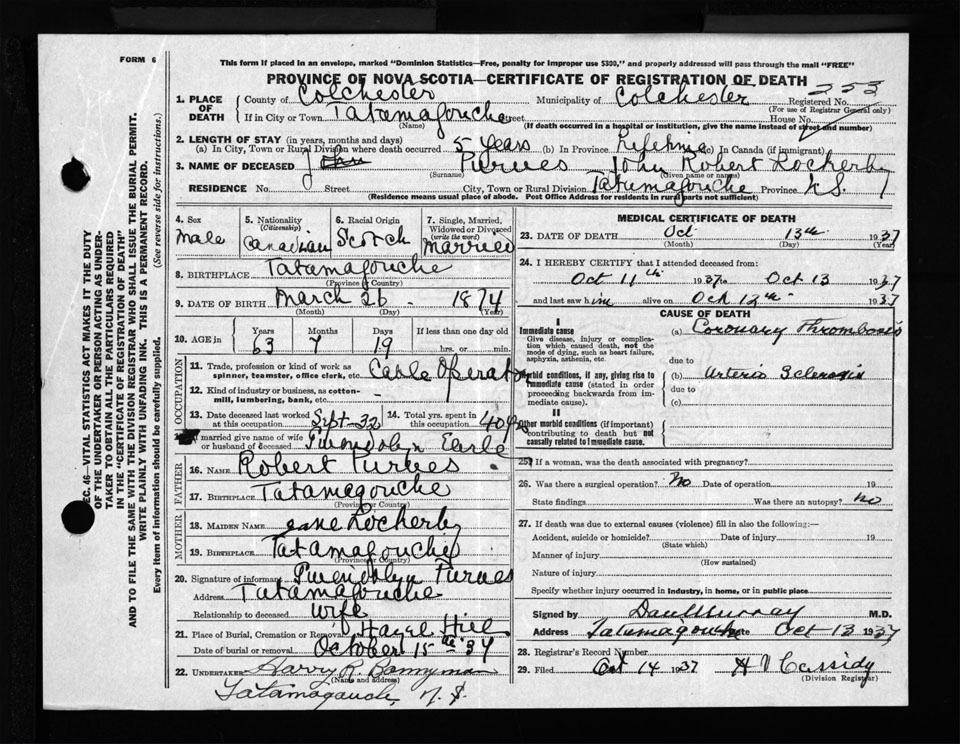 FORM 6
This form if placed in an envelope, marked "Dominion Statistics—Free, penalty for improper use $300," and properly addressed will pass through the mail "FREE"
PROVINCE OF NOVA SCOTIA—CERTIFICATE OF REGISTRATION OF DEATH
253
1. PLACE OF DEATH County of Colchester Municipality of Colchester Registered No.
(For use of Registrar General only)
If in City or Town Tatamagouche Street House No.
(Name) (If death occurred in a hospital or institution, give the name instead of street and number)
2. LENGTH OF STAY (in years, months and days)
(a) In City, Town or Rural Division where death occurred 5 years (b) In Province Lifetime (c) In Canada (if immigrant)
3. NAME OF DECEASED Purves John Robert Lockerby
(Surname) (Given name or names)
RESIDENCE No. Street City, Town or Rural Division Tatamagouche Province N.S.
(Residence means usual place of abode. Post Office Address for residents in rural parts not sufficient)
4. Sex Male
5. Nationality (Citizenship) Canadian
6. Racial Origin Scotch
7. Single, Married, Widowed or Divorced (write the word) Married
8. BIRTHPLACE Tatamagouche
(Province or Country)
9. DATE OF BIRTH March 26 1874
(Month) (Day) (Year)
10. AGE in Years Months Days If less than one day old
63 7 19 hrs. or min.
OCCUPATION
11. Trade, profession or kind of work as spinner, teamster, office clerk, etc. Cable Operator
12. Kind of industry or business, as cotton-mill, lumbering, bank, etc.
13. Date deceased last worked at this occupation Sept-32
14. Total yrs. spent in this occupation 40 yrs
married give name of wife or husband of deceased Gwendolyn Earle
FATHER
16. NAME Robert Purves
17. BIRTHPLACE Tatamagouche
(Province or Country)
MOTHER
18. MAIDEN NAME Jane Lockerby
19. BIRTHPLACE Tatamagouche
(Province or Country)
20. Signature of informant Gwendolyn Purves
Address Tatamagouche
Relationship to deceased Wife
21. Place of Burial, Cremation or Removal Hazel Hill
Date of burial or removal October 15th 37
22. UNDERTAKER Harry R. Bonnyman
(Name and address)
Tatamagouche, N.S.
MEDICAL CERTIFICATE OF DEATH
23. DATE OF DEATH Oct 13th 1937
(Month) (Day) (Year)
24. I HEREBY CERTIFY that I attended deceased from:
Oct 11th 1937 to Oct 13 1937
and last saw him alive on Oct 13th 1937
CAUSE OF DEATH
I
Immediate cause (a) Coronary Thrombosis
Give disease, injury or complication which caused death, not the mode of dying, such as heart failure, asphyxia, asthenia, etc.
due to
Morbid conditions, if any, giving rise to immediate cause (stated in order proceeding backwards from immediate cause). (b) Arterio Sclerosis
due to
(c)
II
Other morbid conditions (if important) contributing to death but not causally related to immediate cause.
25. If a woman, was the death associated with pregnancy?
26. Was there a surgical operation? No Date of operation 19
State findings Was there an autopsy? no
27. If death was due to external causes (violence) fill in also the following:—
Accident, suicide or homicide? Date of injury 19
(State which)
Manner of injury
(How sustained)
Nature of injury
Specify whether injury occurred in industry, in home, or in public place
Signed by Dan Murray M.D.
Address Tatamagouche Date Oct 13 1937
28. Registrar's Record Number
29. Filed Oct 14 1937 A V Cassidy
(Division Registrar)
SEC. 46—VITAL STATISTICS ACT MAKES IT THE DUTY
OF THE UNDERTAKER OR PERSON ACTING AS UNDER-
TAKER TO OBTAIN ALL THE PARTICULARS REQUIRED
IN THE "CERTIFICATE OF REGISTRATION OF DEATH"
AND TO FILE THE SAME WITH THE DIVISION REGISTRAR WHO SHALL ISSUE THE BURIAL PERMIT.
WRITE PLAINLY WITH UNFADING INK. THIS IS A PERMANENT RECORD.
Every item of information should be carefully supplied. (See reverse side for instructions.)